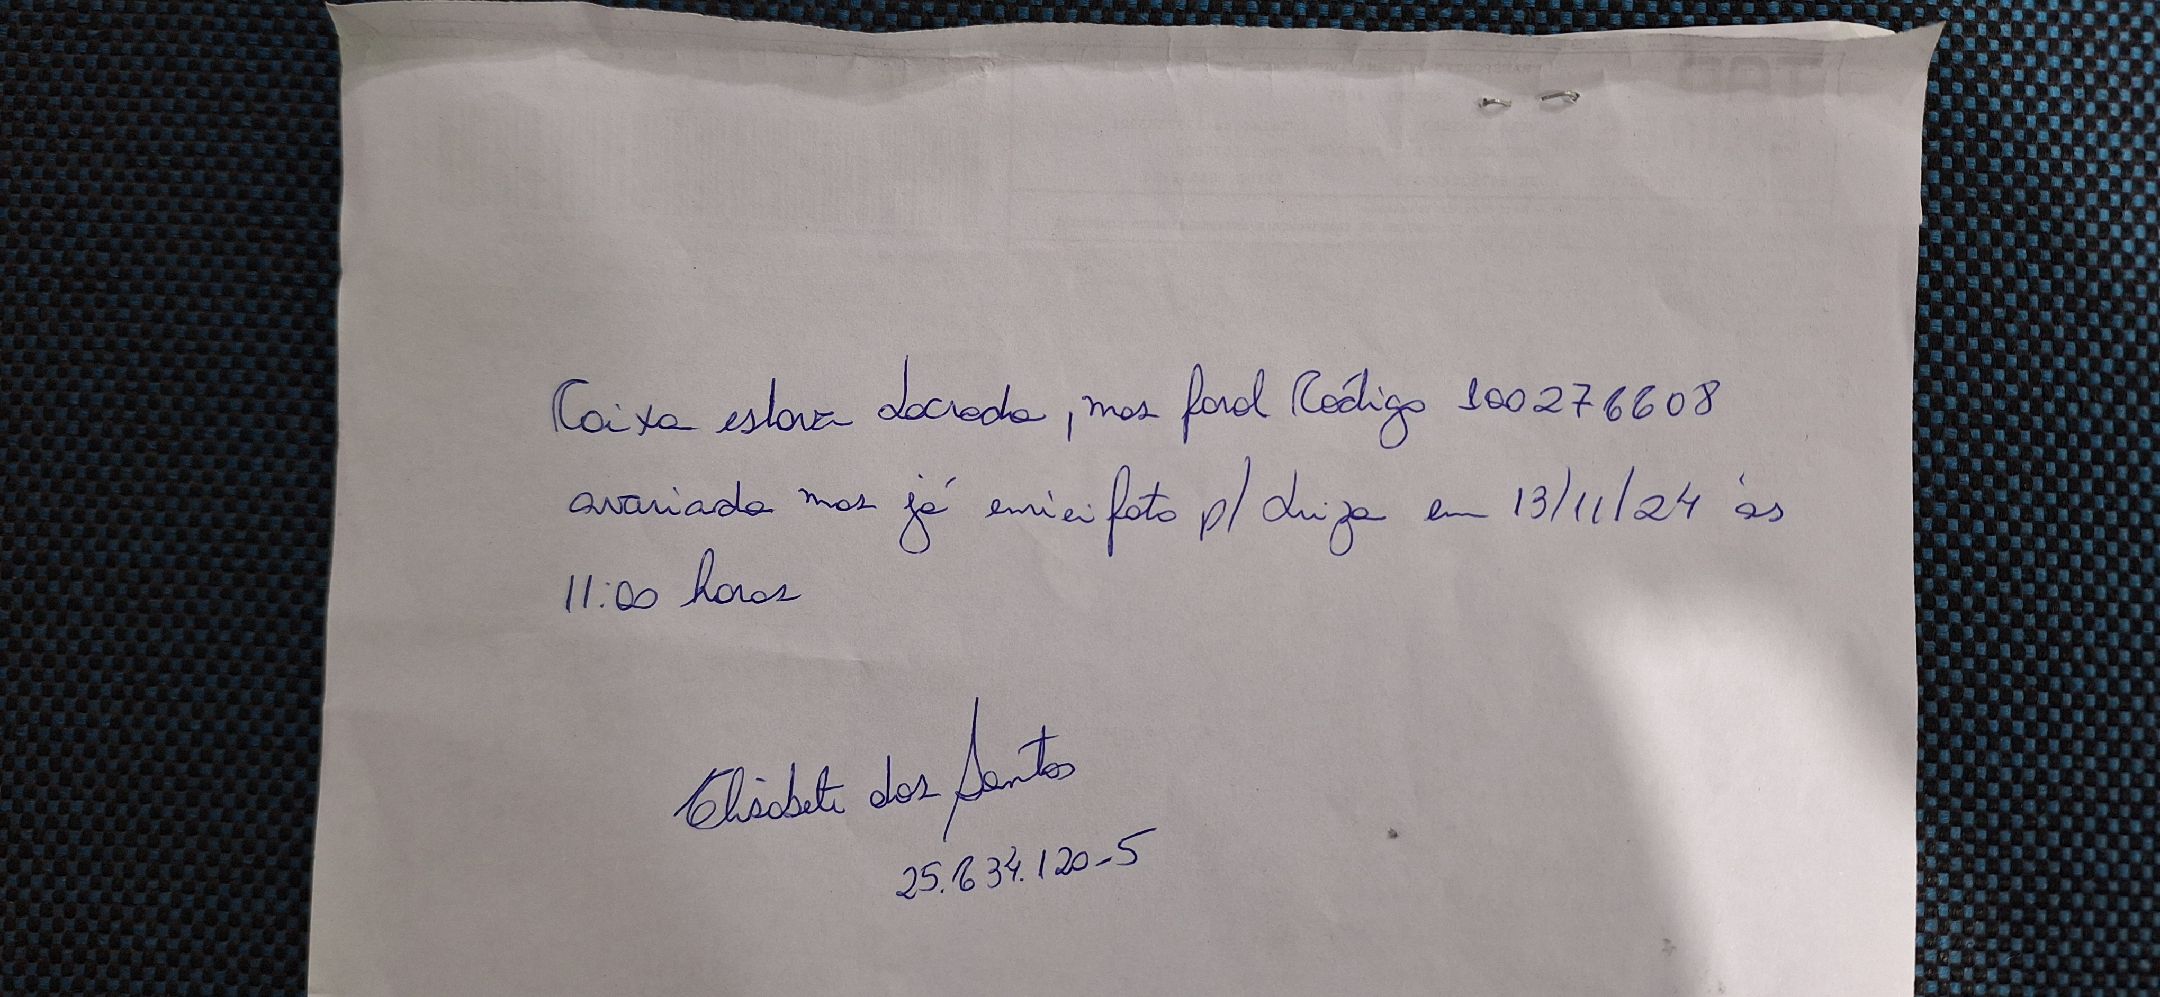 Caixa estava lacrada, mas farol Código 100276608
avariado mas já enviei foto p/ Luiza em 13/11/24 às
11:00 horas
Elisabete dos Santos
25.634.120-5